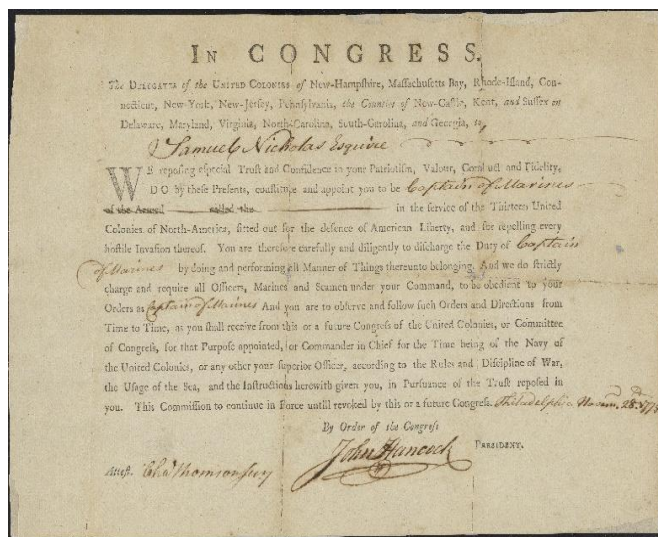 IN CONGRESS.
The DELEGATES of the UNITED COLONIES of New-Hampshire, Massachusetts Bay, Rhode-Island, Con-
necticut, New-York, New-Jersey, Pennsylvania, the Counties of New-Castle, Kent, and Sussex on
Delaware, Maryland, Virginia, North-Carolina, South-Carolina, and Georgia, to
Samuel Nicholas Esquire
WE reposing especial Trust and Confidence in your Patriotism, Valour, Conduct and Fidelity,
DO by these Presents, constitute and appoint you to be Captain of Marines
of the Armed called the in the service of the Thirteen United
Colonies of North-America, fitted out for the defence of American Liberty, and for repelling every
hostile Invasion thereof. You are therefore carefully and diligently to discharge the Duty of Captain
of Marines by doing and performing all Manner of Things thereunto belonging. And we do strictly
charge and require all Officers, Marines and Seamen under your Command, to be obedient to your
Orders as Captain of Marines And you are to observe and follow such Orders and Directions from
Time to Time, as you shall receive from this or a future Congress of the United Colonies, or Committee
of Congress, for that Purpose appointed, or Commander in Chief for the Time being of the Navy of
the United Colonies, or any other your superior Officer, according to the Rules and Discipline of War,
the Usage of the Sea, and the Instructions herewith given you, in Pursuance of the Trust reposed in
you. This Commission to continue in Force until revoked by this or a future Congress. Philadelphia Novem. 28th 1775
By Order of the Congress
John Hancock PRESIDENT.
Attest. Cha Thomson secy